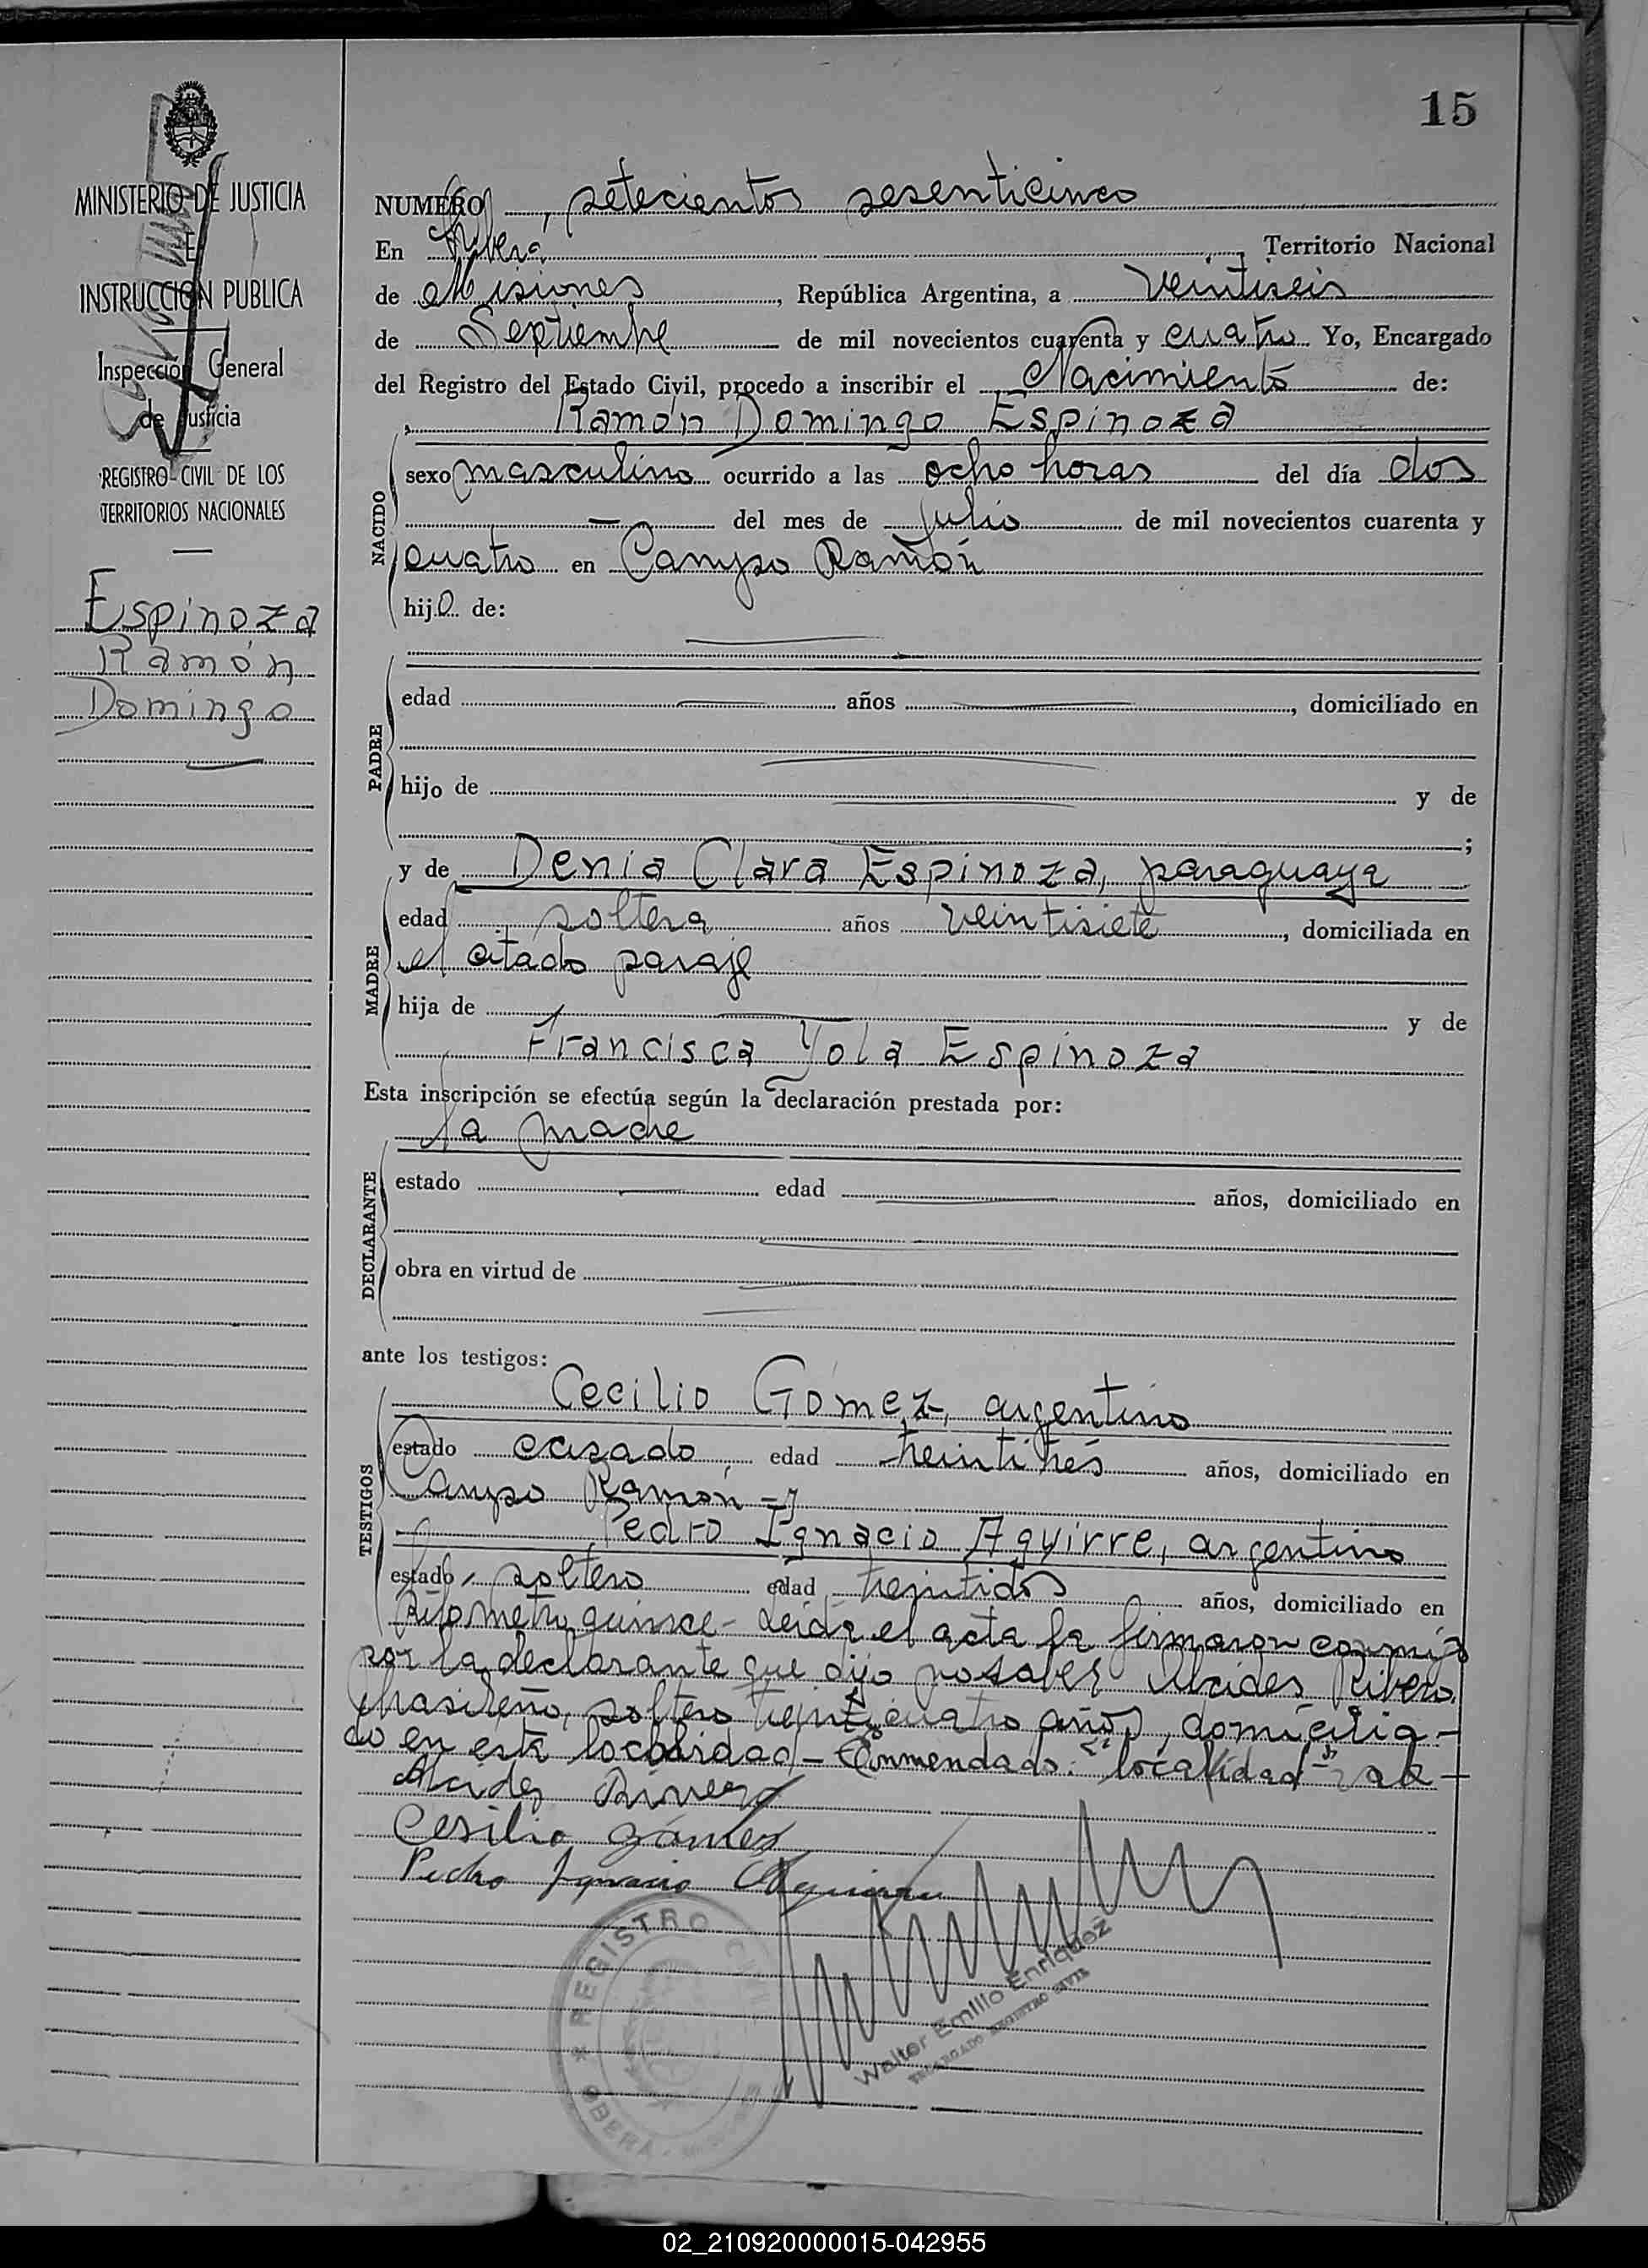 15
MINISTERIO DE JUSTICIA
E
INSTRUCCION PUBLICA
Inspección General
de Justicia
REGISTRO CIVIL DE LOS
TERRITORIOS NACIONALES
Espinoza
Ramón
Domingo
NUMERO setecientos sesenticinco
En Oberá, Territorio Nacional
de Misiones, República Argentina, a veintiseis
de Septiembre de mil novecientos cuarenta y cuatro Yo, Encargado
del Registro del Estado Civil, procedo a inscribir el Nacimiento de:
Ramón Domingo Espinoza
NACIDO
sexo masculino ocurrido a las ocho horas del día dos
— del mes de julio de mil novecientos cuarenta y
cuatro en Campo Ramón
hijo de:
PADRE
edad años , domiciliado en
hijo de y de
;
y de Denia Clara Espinoza, paraguaya
MADRE
edad soltera años veintisiete, domiciliada en
el citado paraje
hija de y de
Francisca Yola Espinoza
Esta inscripción se efectúa según la declaración prestada por:
la madre
DECLARANTE
estado edad años, domiciliado en
obra en virtud de
ante los testigos:
Cecilio Gómez, argentino
TESTIGOS
estado casado, edad treintitrés años, domiciliado en
Campo Ramón - y
Pedro Ignacio Aguirre, argentino
estado, soltero edad treintidos años, domiciliado en
Kilometro quince - Leida el acta la firmaron conmigo
por la declarante que dijo no saber Alcides Ribero,
brasileño, soltero treinticuatro años, domicilia-
do en esta localidad - Enmendado: "localidad" vale -
Alcides
Cesilio Gomez
Pedro Ignacio Aguirre
REGISTRO CIVIL
OBERA
Walter Emilio Enriquez
ENCARGADO REGISTRO CIVIL
02_210920000015-042955